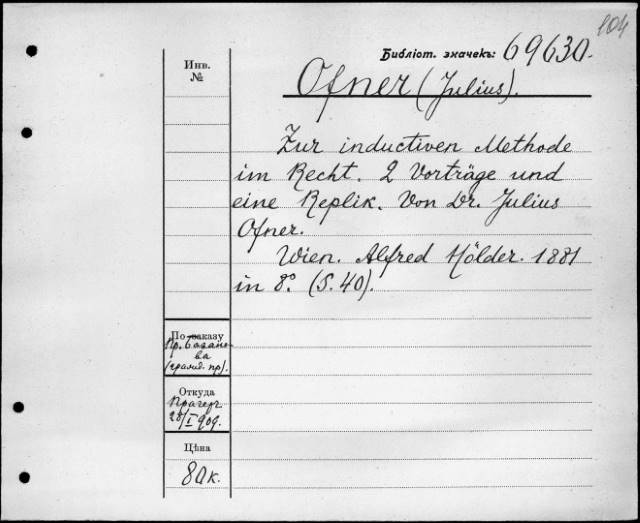 104
Библіот. значекъ: 69630.
Инв.
№
Ofner (Julius).
Zur inductiven Methode
im Recht. 2 Vorträge und
eine Replik. Von Dr. Julius
Ofner.
Wien. Alfred Hölder. 1881
in 8º. (S. 40).
По заказу
Пр.
(гражд. пр).
Откуда
Прагеръ
28/I 909.
Цѣна
80 к.